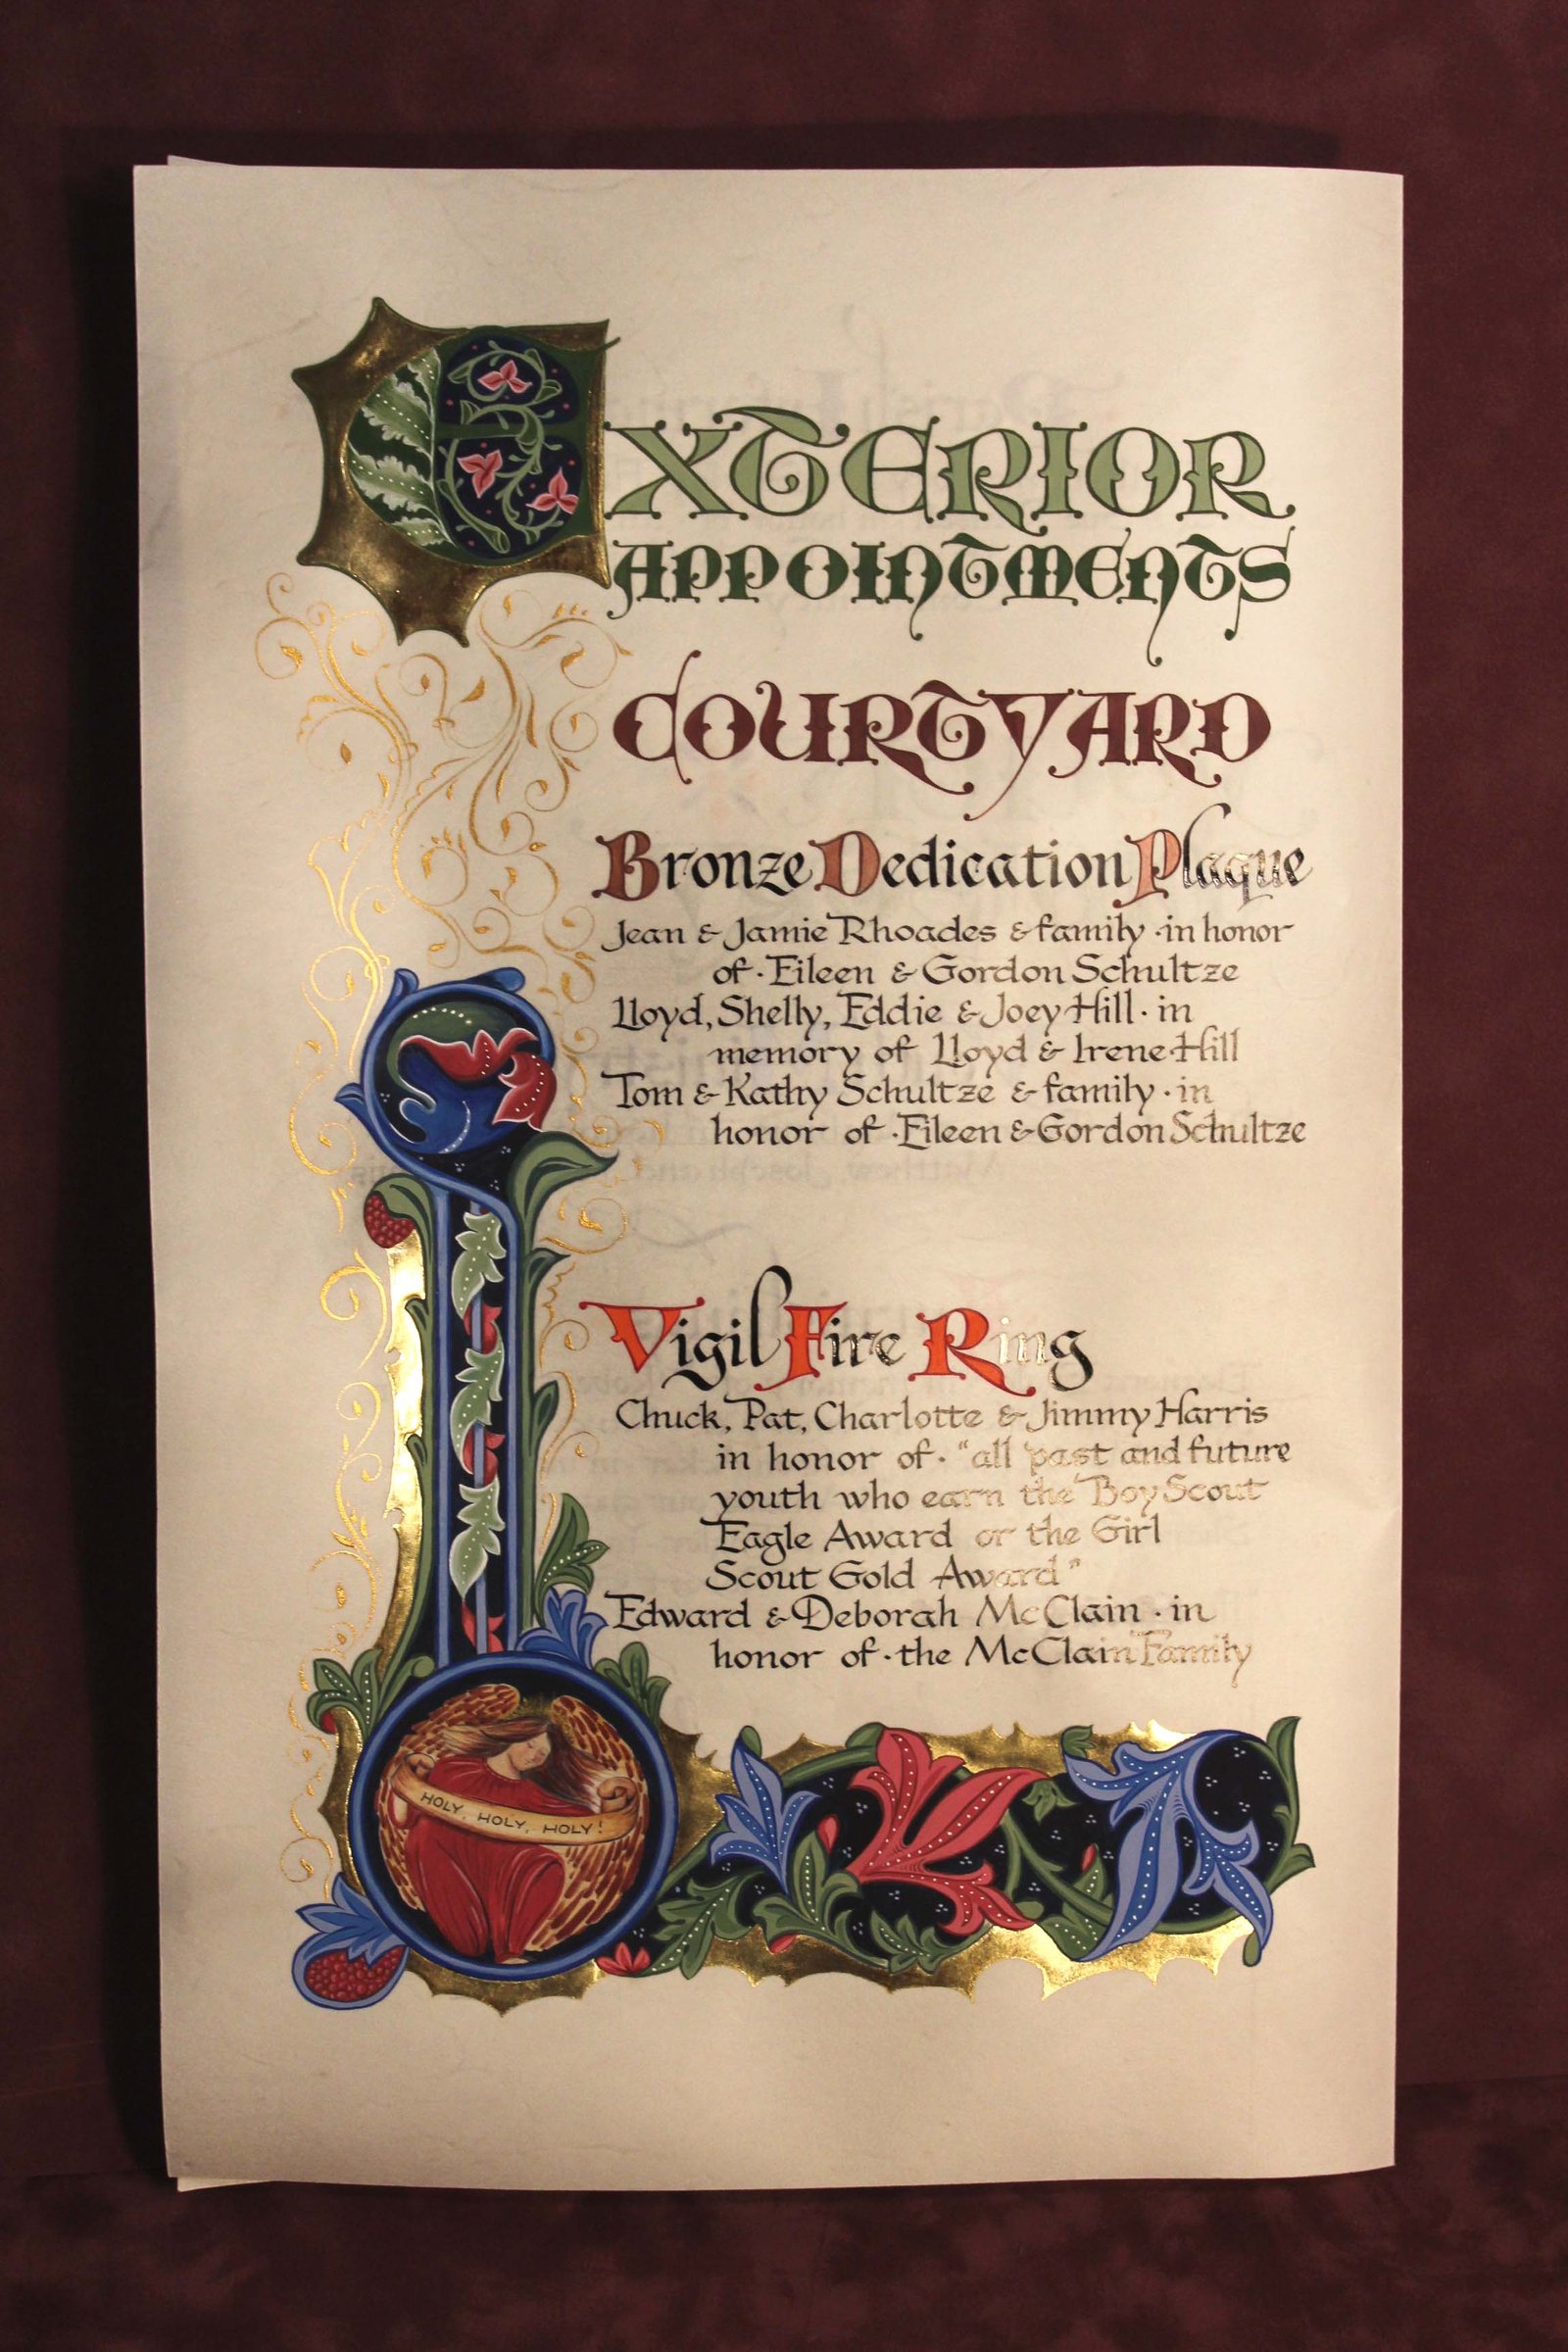 EXTERIOR
APPOINTMENTS
COURTYARD
Bronze Dedication Plaque
Jean & Jamie Rhoades & family · in honor
of · Eileen & Gordon Schultze
Lloyd, Shelly, Eddie & Joey Hill · in
memory of Lloyd & Irene Hill
Tom & Kathy Schultze & family · in
honor of · Eileen & Gordon Schultze
Vigil Fire Ring
Chuck, Pat, Charlotte & Jimmy Harris
in honor of · "all past and future
youth who earn the Boy Scout
Eagle Award or the Girl
Scout Gold Award"
Edward & Deborah McClain · in
honor of · the McClain Family
HOLY, HOLY, HOLY!